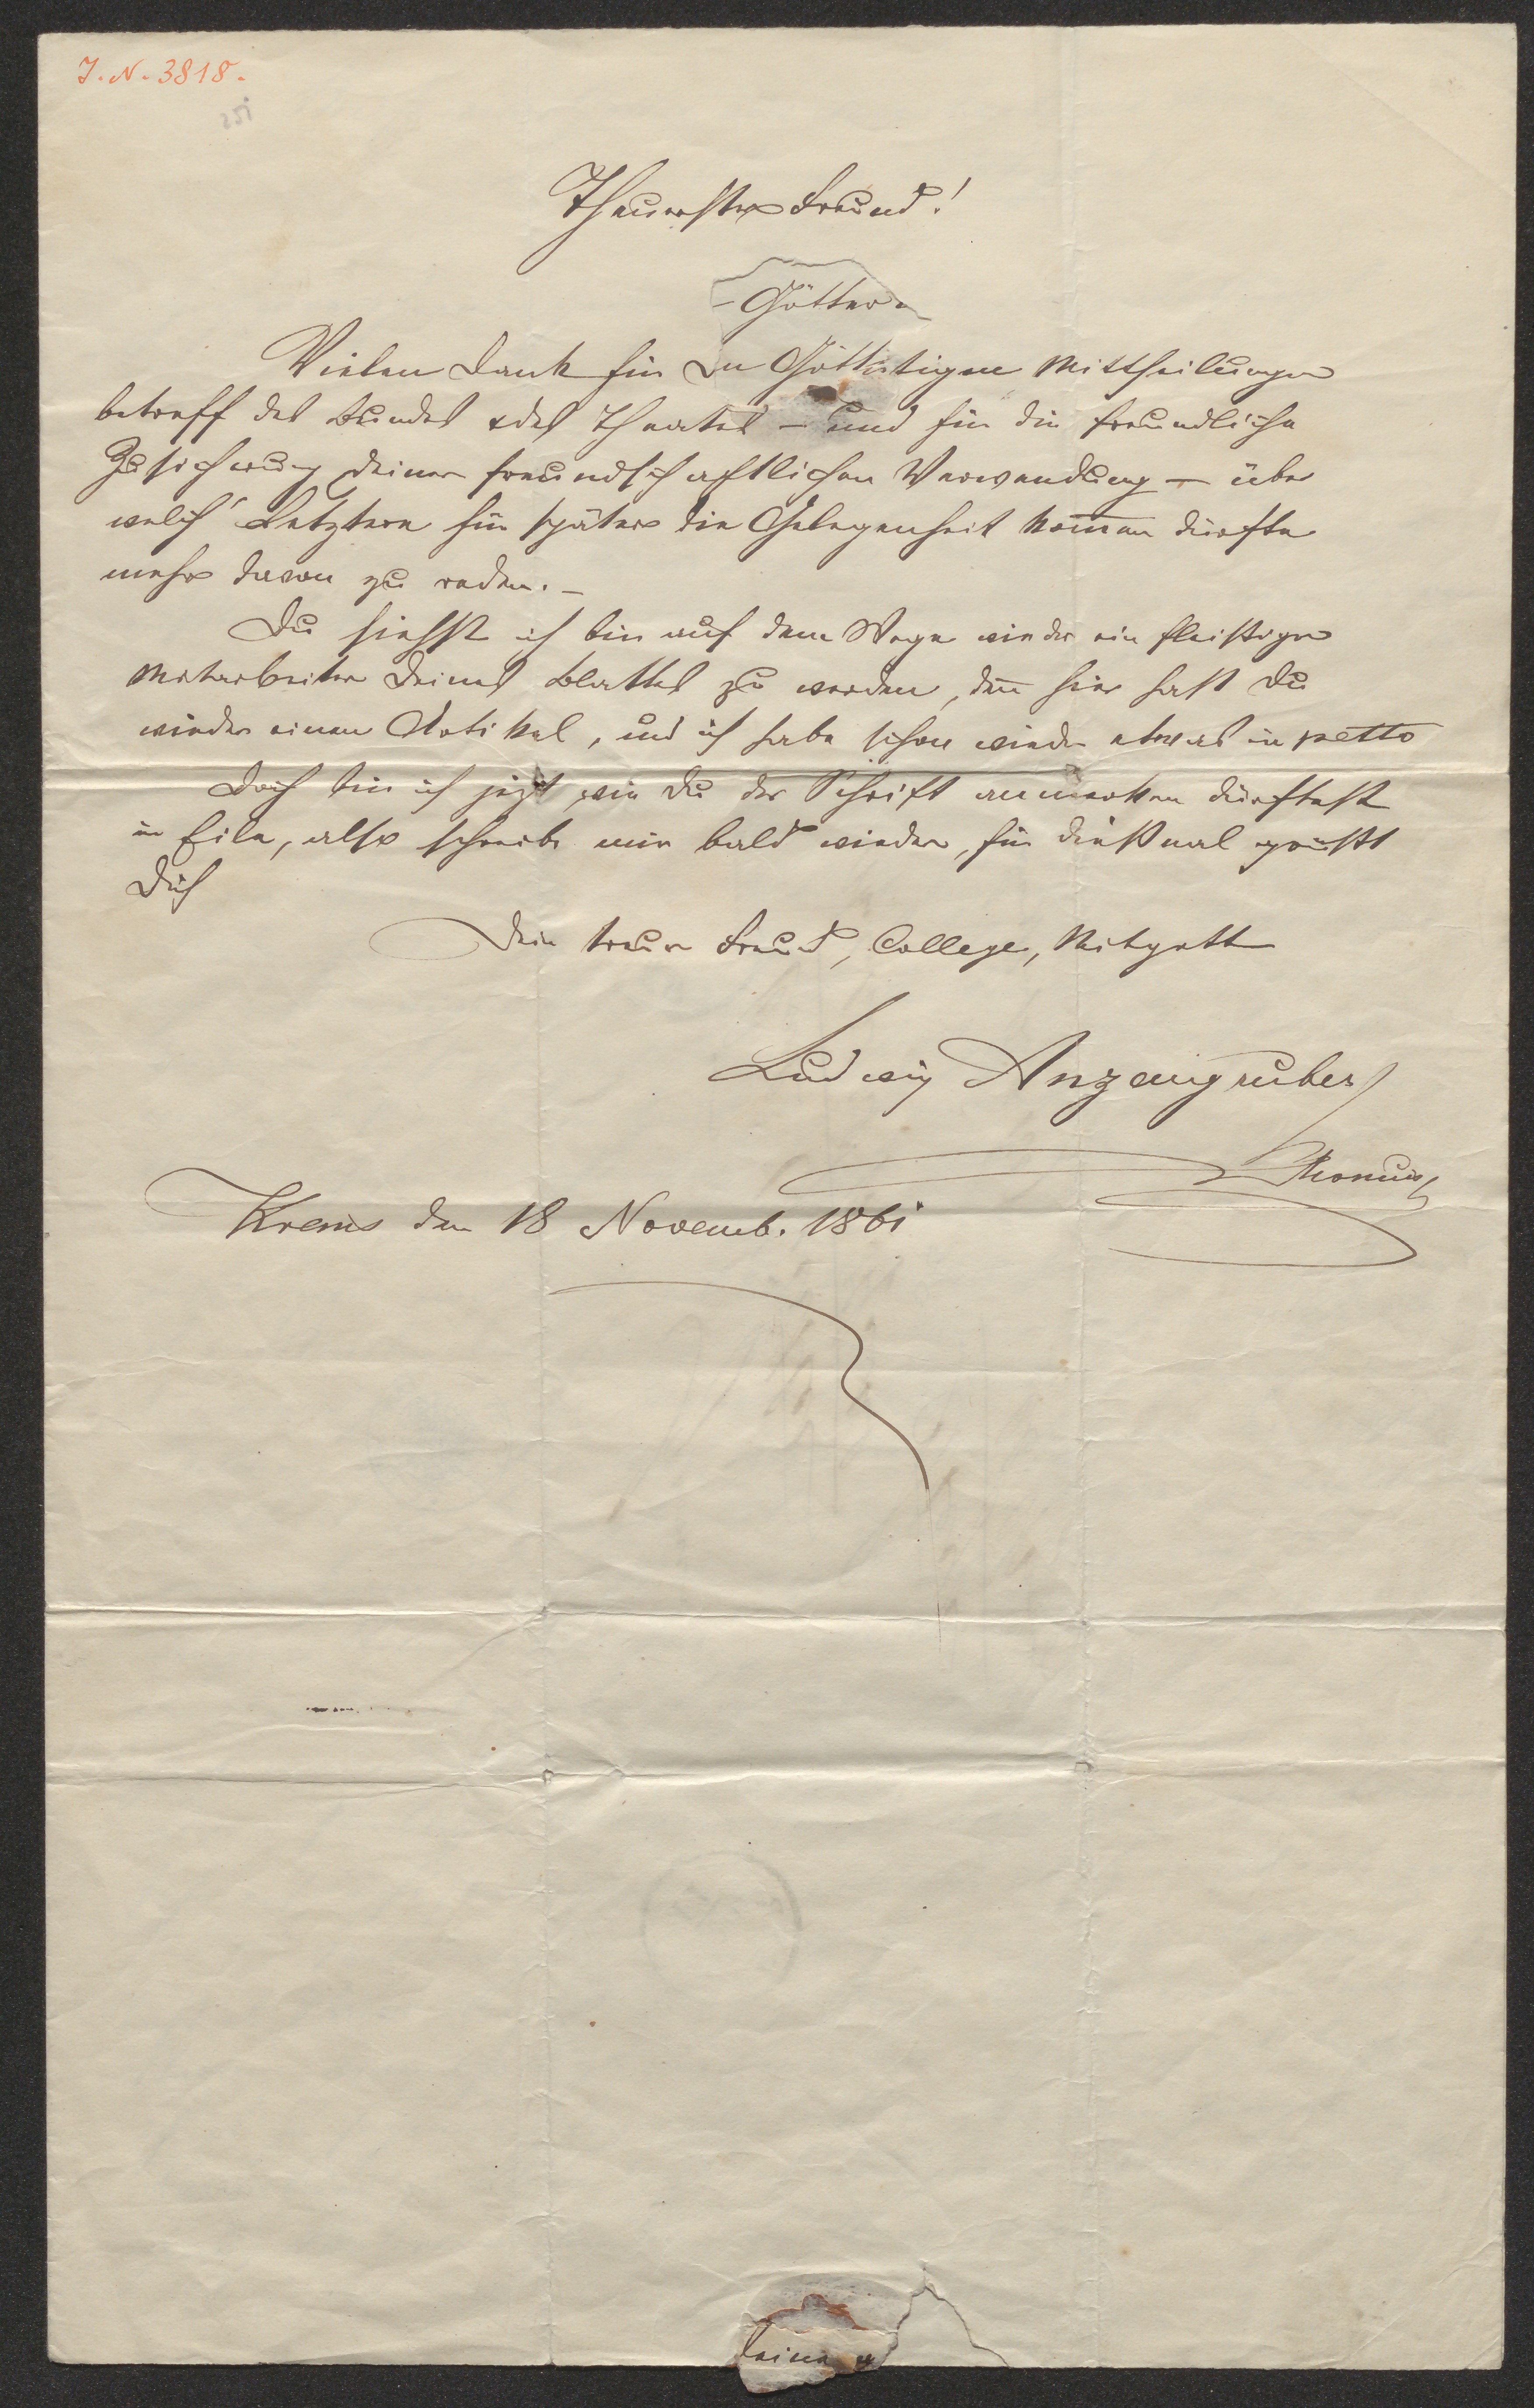 J. N. 3818.
251
Theuerster Freund!
Götter
Vielen Dank für die Mittheilungen
betreff des Bundes & des Theaters – und für die freundliche
Zusicherung Deiner freundschaftlichen Verwendung – über
welch' Letztere für später die Gelegenheit kom̅en dürfte
mehr davon zu reden. –
Du siehst ich bin auf dem Wege wieder ein fleißiger
Mitarbeiter Deines Blattes zu werden, den̅ hier hast Du
wieder einen Artikel, und ich habe schon wieder etwas in petto
Doch bin ich jezt, wie Du der Schrift anmerken dürftest
in Eile, also schreibe mir bald wieder, für dießmal grüßt
Dich
Dein treuer Freund, College, Mitgott
Ludwig Anzengruber
Krems den 18 Novemb. 1861